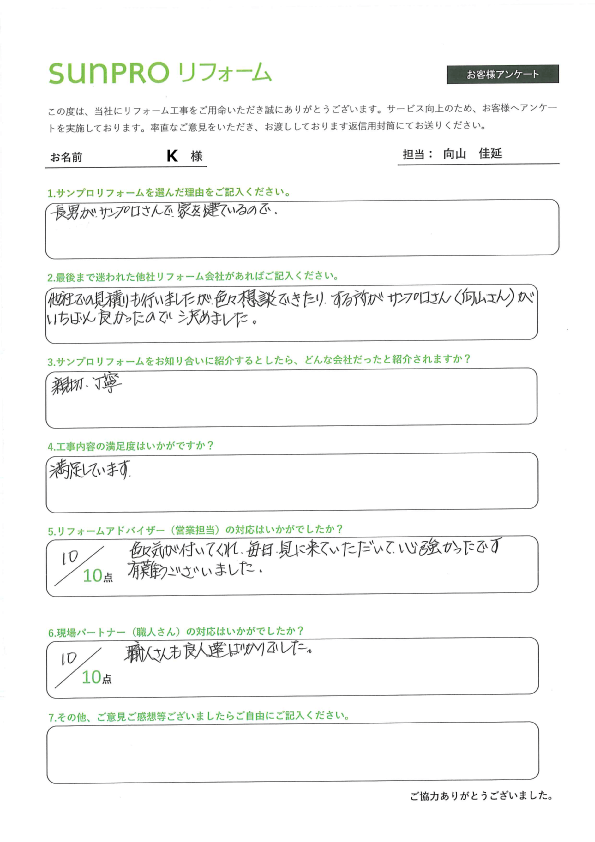 sunPRO リフォーム
お客様アンケート
この度は、当社にリフォーム工事をご用命いただき誠にありがとうございます。サービス向上のため、お客様へアンケー
トを実施しております。率直なご意見をいただき、お渡ししております返信用封筒にてお送りください。
お名前 K 様
担当： 向山 佳延
1.サンプロリフォームを選んだ理由をご記入ください。
長男が、サンプロさんで、家を建ているので、
2.最後まで迷われた他社リフォーム会社があればご記入ください。
他社での見積りも行いましたが色々相談できたり、する方が サンプロさん（向山さん）が
いちばん良かったので 決めました。
3.サンプロリフォームをお知り合いに紹介するとしたら、どんな会社だったと紹介されますか？
親切、丁寧
4.工事内容の満足度はいかがですか？
満足しています。
5.リフォームアドバイザー（営業担当）の対応はいかがでしたか？
10／10点
色々気が付いてくれ、毎日、見に来ていただいて、心強かったです
有難うございました。
6.現場パートナー（職人さん）の対応はいかがでしたか？
10／10点
職人さんも良人達ばかりでした。
7.その他、ご意見ご感想等ございましたらご自由にご記入ください。
ご協力ありがとうございました。